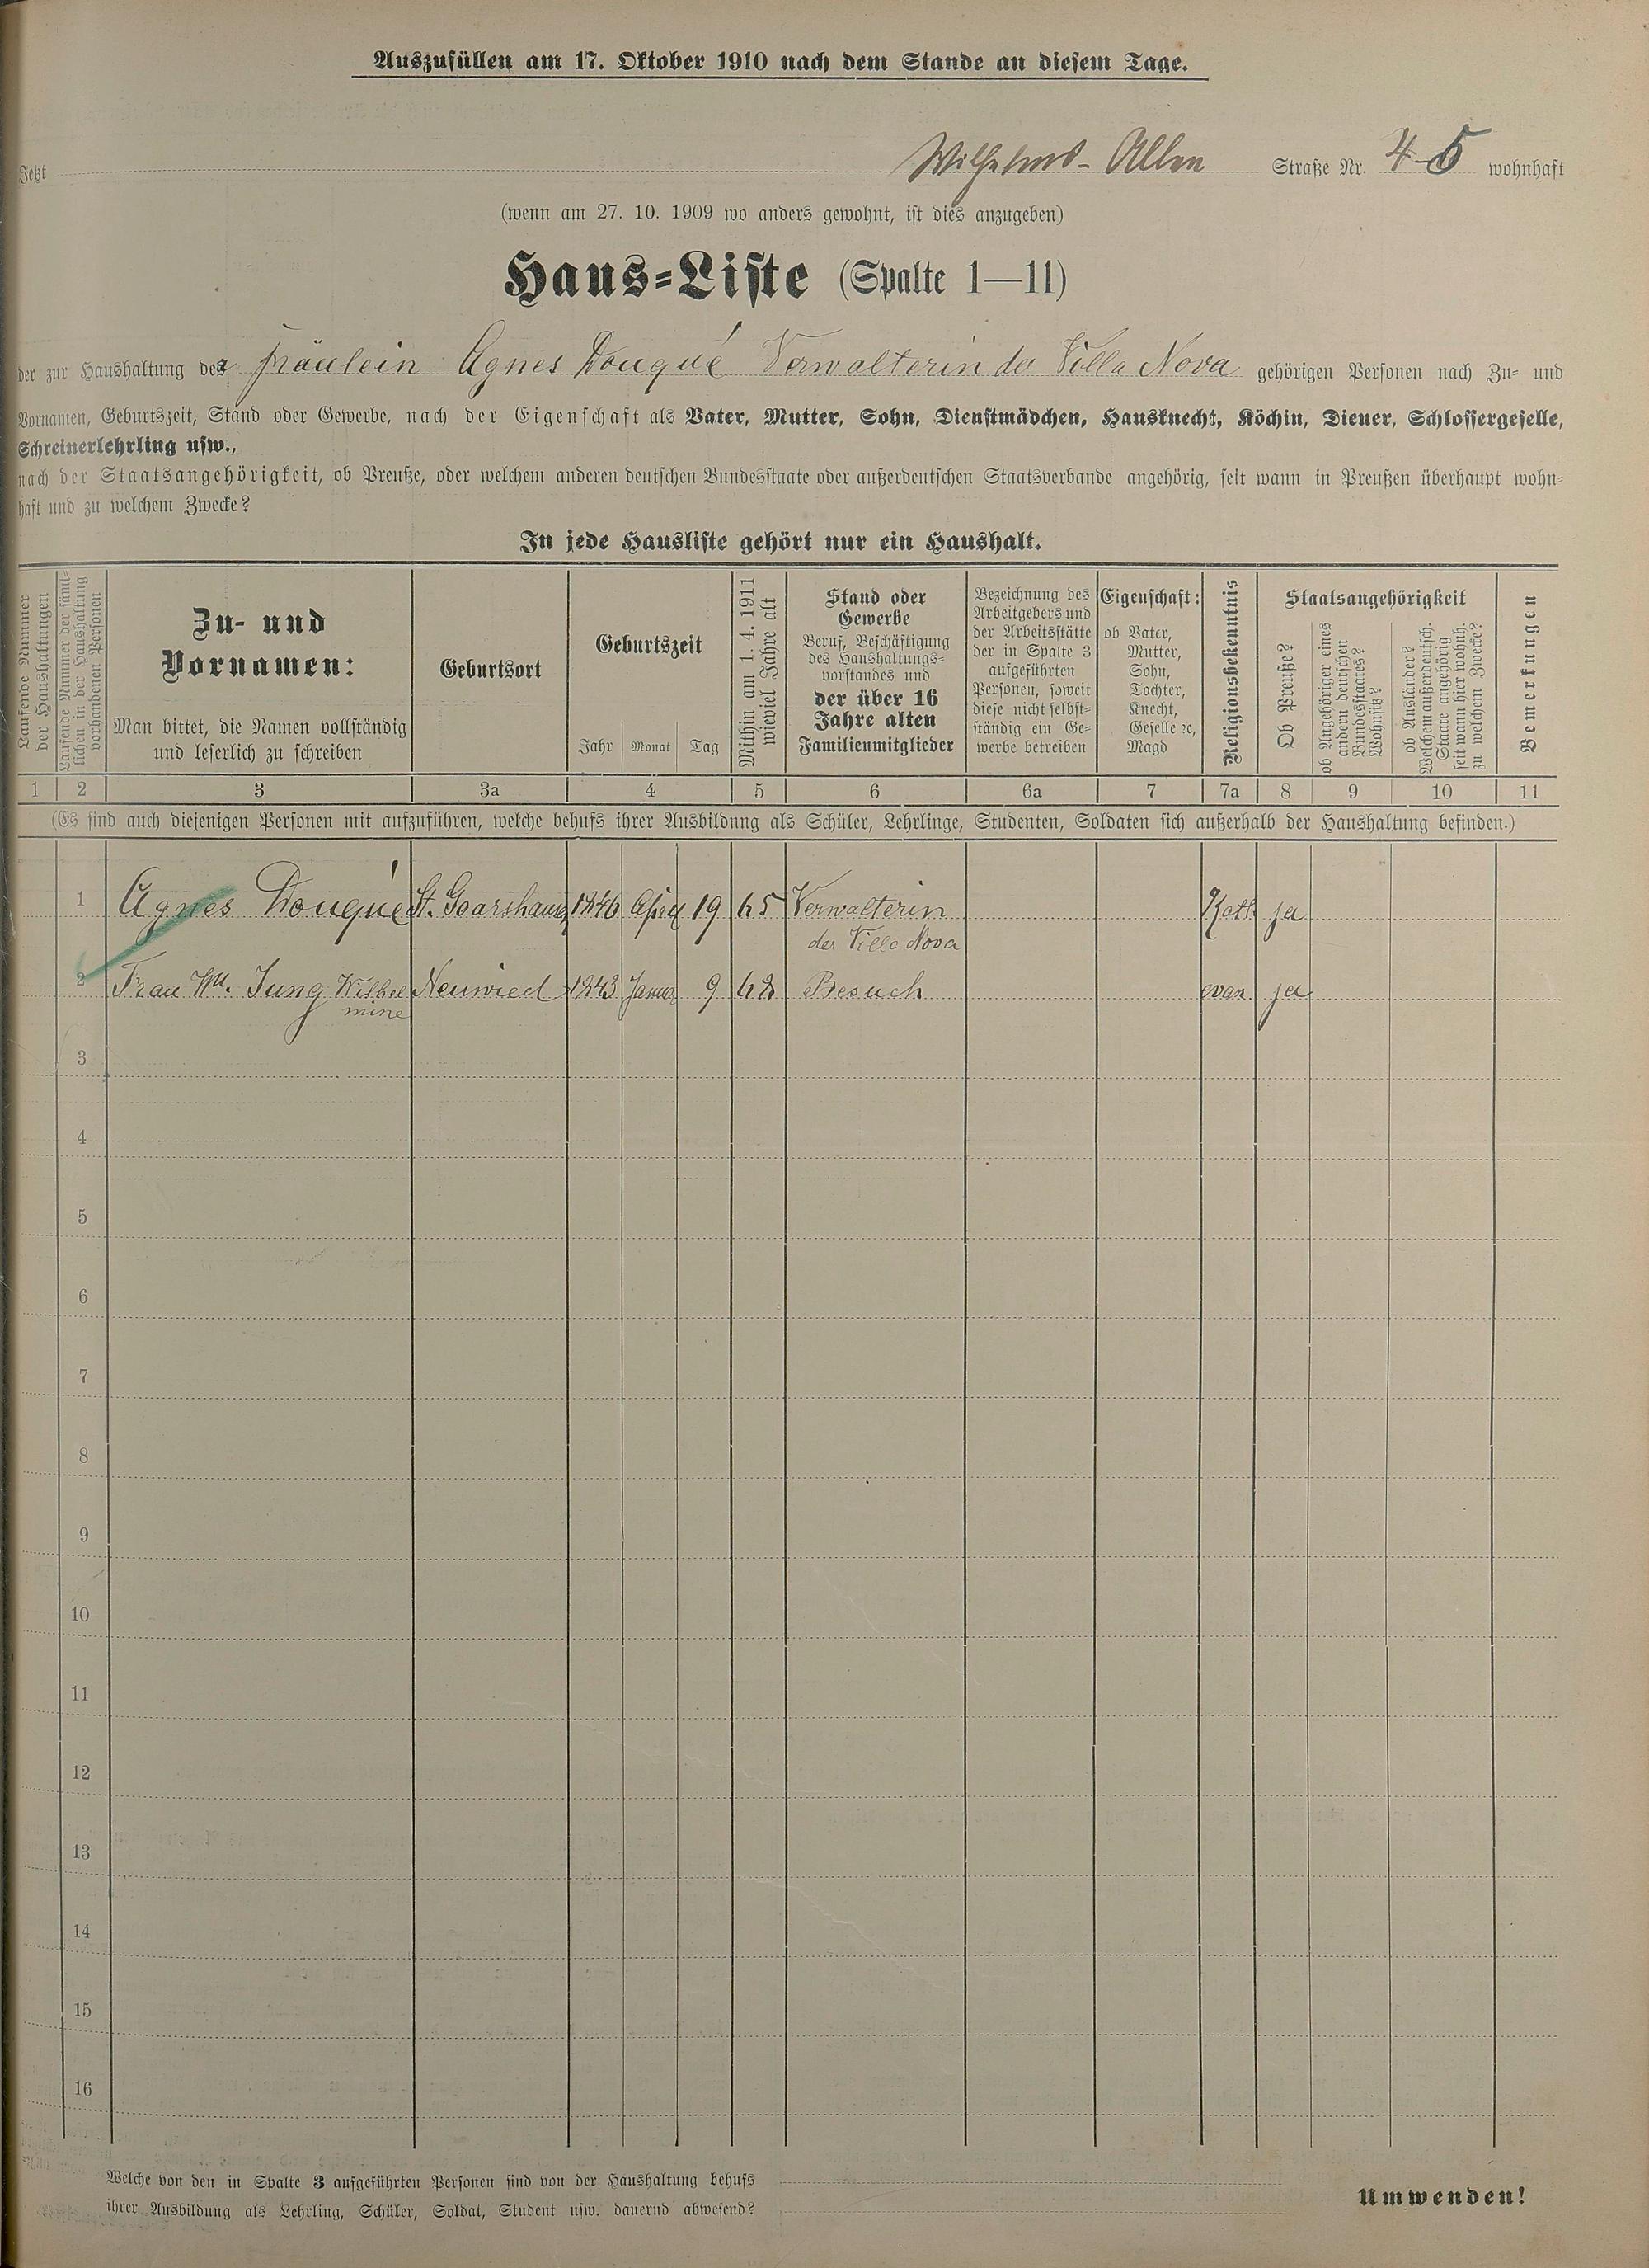 Auszufüllen am 17. Oktober 1910 nach dem Stande an diesem Tage.
Jetzt Wilhelms-Allee Straße Nr. 45 wohnhaft
(wenn am 27. 10. 1909 wo anders gewohnt, ist dies anzugeben)
Haus-Liste (Spalte 1—11)
der zur Haushaltung der Fräulein Agnes Douqué Verwalterin de Villa Nova gehörigen Personen nach Zu- und
Vornamen, Geburtszeit, Stand oder Gewerbe, nach der Eigenschaft als Vater, Mutter, Sohn, Dienstmädchen, Hausknecht, Köchin, Diener, Schlossergeselle,
Schreinerlehrling usw.,
nach der Staatsangehörigkeit, ob Preuße, oder welchem anderen deutschen Bundesstaate oder außerdeutschen Staatsverbande angehörig, seit wann in Preußen überhaupt wohn-
haft und zu welchem Zwecke?
In jede Hausliste gehört nur ein Haushalt.
Laufende Nummer
der Haushaltungen
Laufende Nummer der sämt-
lichen in der Haushaltung
vorhandenen Personen
Zu- und
Vornamen:
Man bittet, die Namen vollständig
und leserlich zu schreiben
Geburtsort
Geburtszeit
Jahr Monat Tag
Mithin am 1. 4. 1911
wieviel Jahre alt
Stand oder
Gewerbe
Beruf, Beschäftigung
des Haushaltungs-
vorstandes und
der über 16
Jahre alten
Familienmitglieder
Bezeichnung des
Arbeitgebers und
der Arbeitsstätte
der in Spalte 3
aufgeführten
Personen, soweit
diese nicht selbst-
ständig ein Ge-
werbe betreiben
Eigenschaft:
ob Vater,
Mutter,
Sohn,
Tochter,
Knecht,
Geselle ec,
Magd
Religionsbekenntnis
Staatsangehörigkeit
Ob Preuße?
ob Angehöriger eines
andern deutschen
Bundesstaates?
Wohnsitz?
ob Ausländer?
Welchem außerdeutsch.
Staate angehörig
seit wann hier wohnh.
zu welchem Zwecke?
Bemerkungen
1 2 3 3a 4 5 6 6a 7 7a 8 9 10 11
(Es sind auch diejenigen Personen mit aufzuführen, welche behufs ihrer Ausbildung als Schüler, Lehrlinge, Studenten, Soldaten sich außerhalb der Haushaltung befinden.)
1 Agnes Douqué St. Goarshausen 1846 April 19 65 Verwalterin Kath ja
der Villa Nova
2 Frau Ww. Jung Wilhel Neuwied 1843 Januar 9 68 Besuch evan ja
mine
3
4
5
6
7
8
9
10
11
12
13
14
15
16
Welche von den in Spalte 3 aufgeführten Personen sind von der Haushaltung behufs
ihrer Ausbildung als Lehrling, Schüler, Soldat, Student usw. dauernd abwesend?
Umwenden!